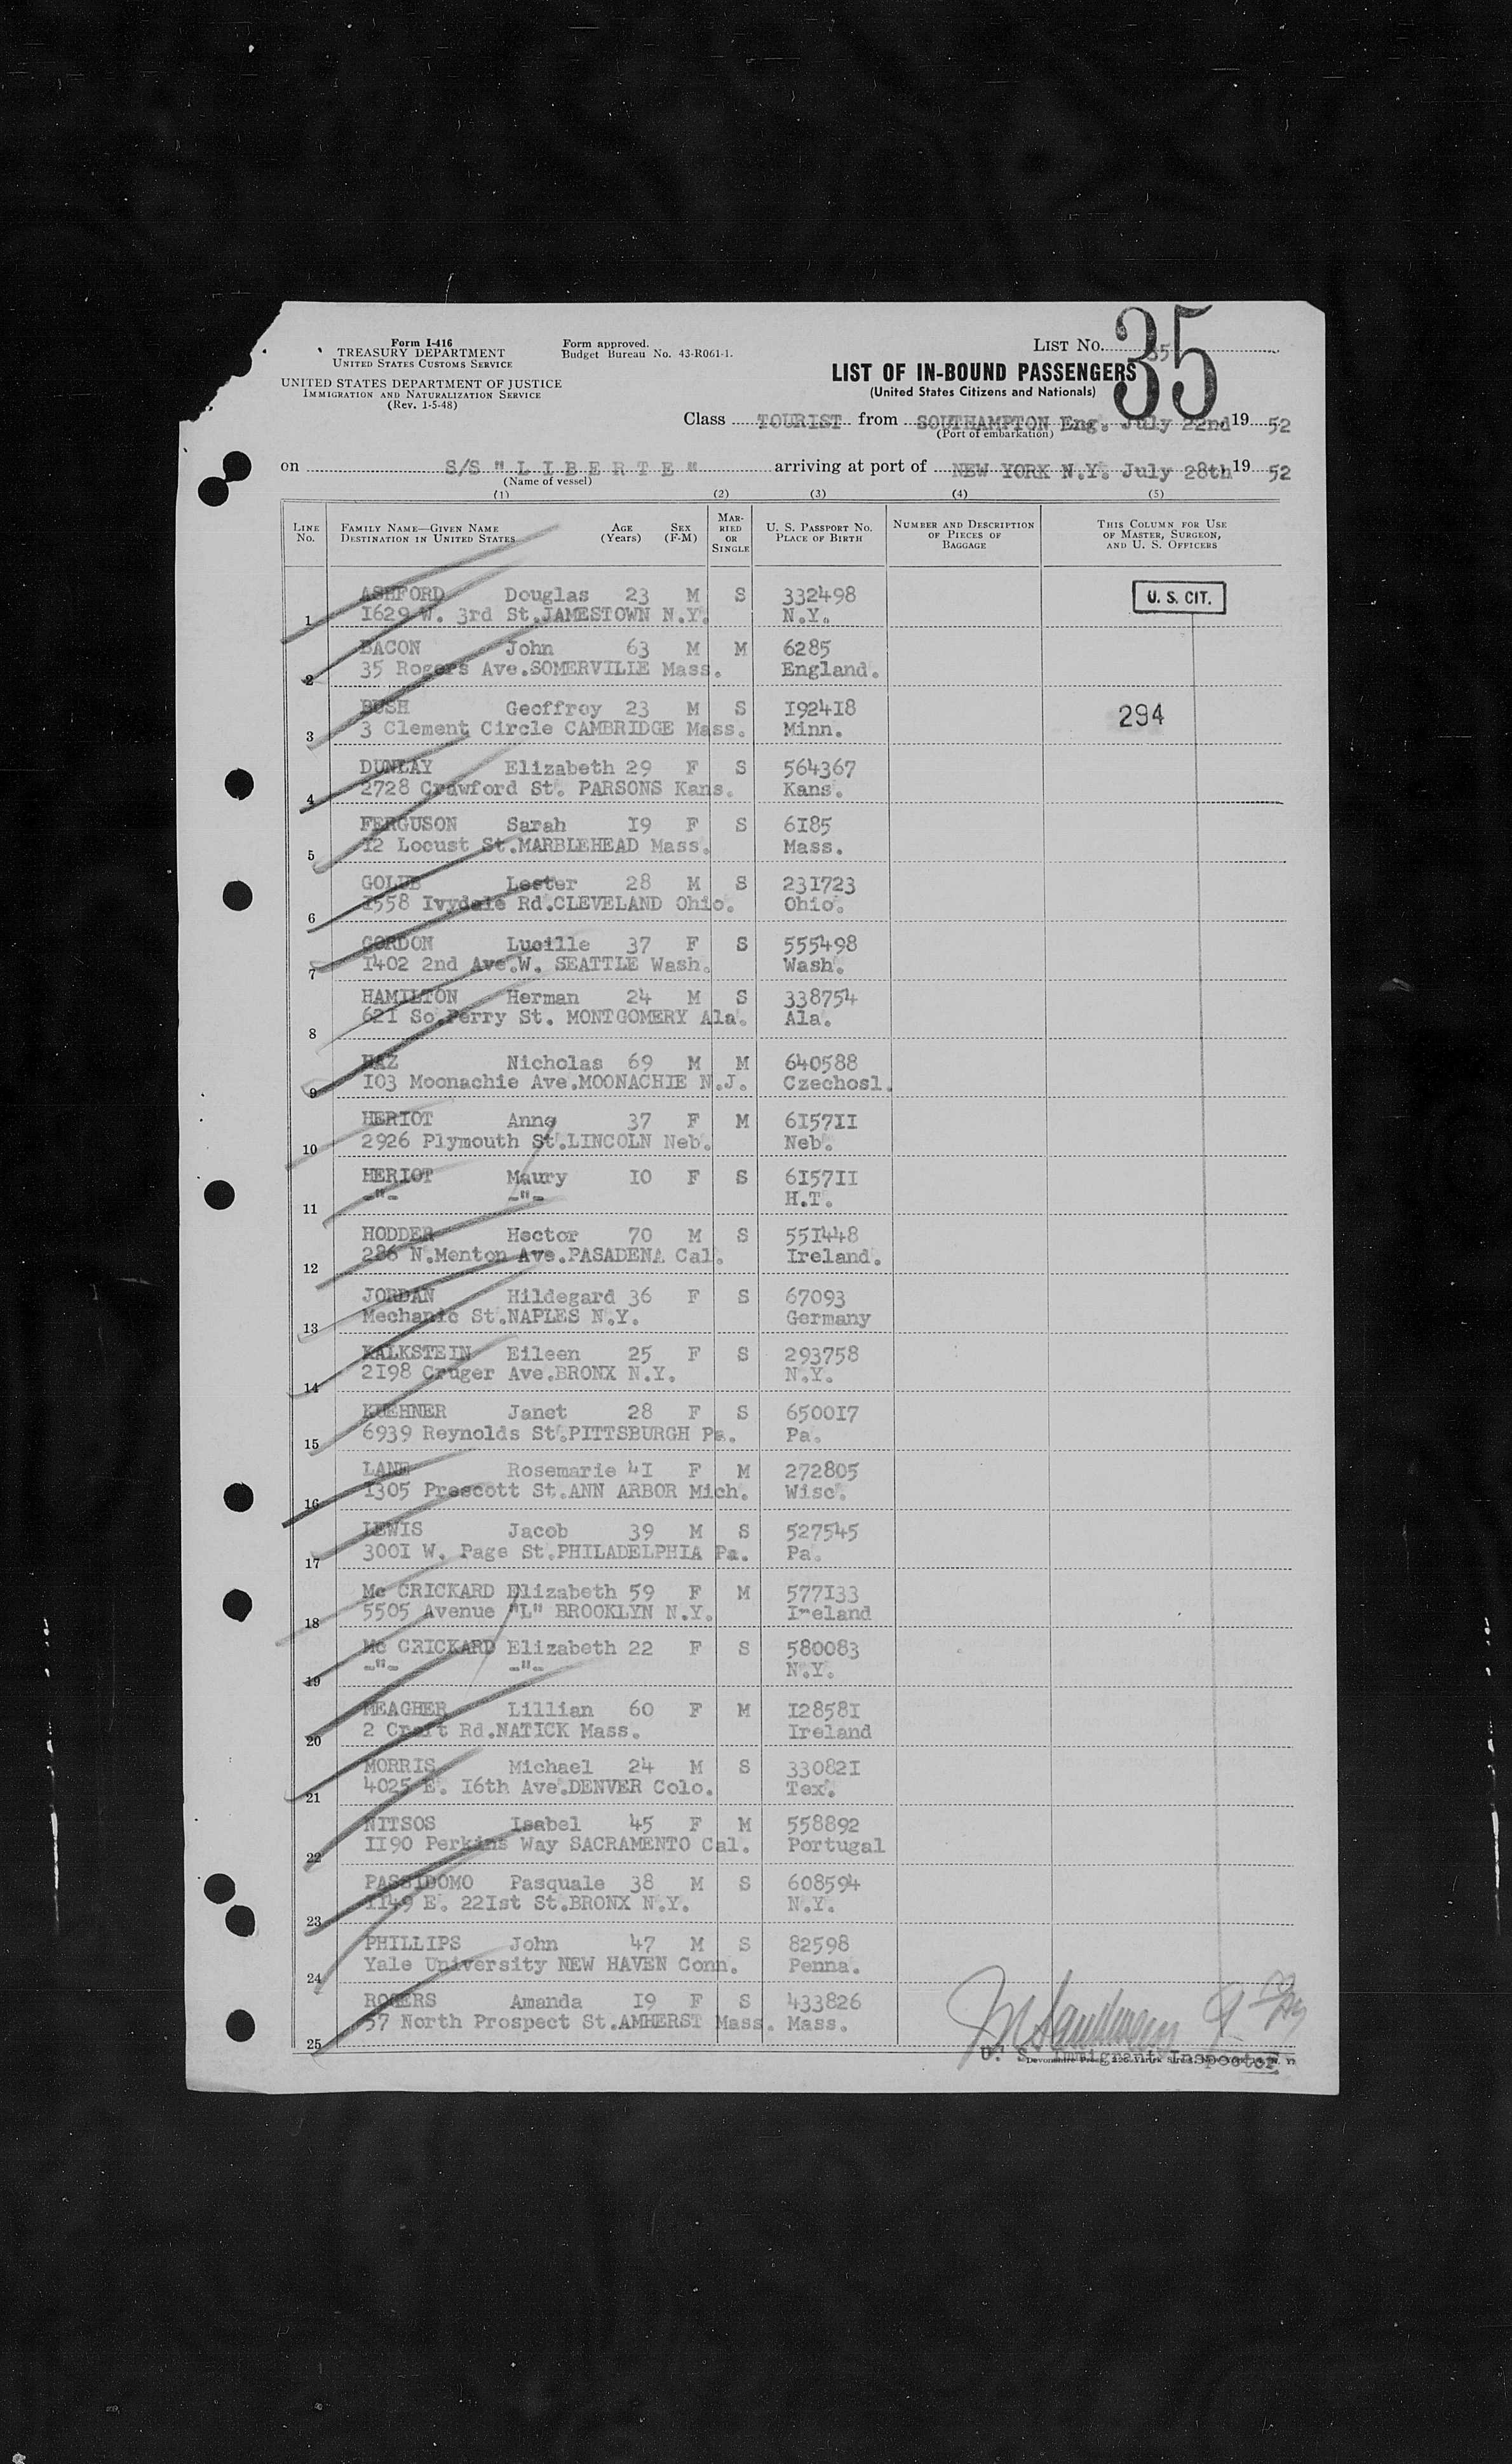 Form I-416
TREASURY DEPARTMENT
UNITED STATES CUSTOMS SERVICE
UNITED STATES DEPARTMENT OF JUSTICE
IMMIGRATION AND NATURALIZATION SERVICE
(Rev. 1-5-48)
Form approved.
Budget Bureau No. 43-R061-1.
LIST No. 35
35
LIST OF IN-BOUND PASSENGERS
(United States Citizens and Nationals)
Class TOURIST from SOUTHAMPTON Eng. July 22nd, 19 52
(Port of embarkation)
on S/S "LIBERTE" arriving at port of NEW YORK N.Y. July 28th, 19 52
(Name of vessel)
(1) (2) (3) (4) (5)
LINE No. FAMILY NAME—GIVEN NAME DESTINATION IN UNITED STATES AGE (Years) SEX (F-M) MARRIED OR SINGLE U. S. PASSPORT NO. PLACE OF BIRTH NUMBER AND DESCRIPTION OF PIECES OF BAGGAGE THIS COLUMN FOR USE OF MASTER, SURGEON, AND U. S. OFFICERS
ASHFORD Douglas 23 M S 332498 U. S. CIT.
1 1629 W. 3rd St.JAMESTOWN N.Y. N.Y.
BACON John 63 M M 6285
2 35 Rogers Ave.SOMERVILLE Mass. England.
BUSH Geoffroy 23 M S 192418 294
3 3 Clement Circle CAMBRIDGE Mass. Minn.
DUNLAY Elizabeth 29 F S 564367
4 2728 Crawford St. PARSONS Kans. Kans.
FERGUSON Sarah 19 F S 6185
5 12 Locust St.MARBLEHEAD Mass. Mass.
GOLUB Lester 28 M S 231723
6 1558 Ivydale Rd.CLEVELAND Ohio. Ohio.
GORDON Lucille 37 F S 555498
7 1402 2nd Ave.W. SEATTLE Wash. Wash.
HAMILTON Herman 24 M S 338754
8 621 So.Perry St. MONTGOMERY Ala. Ala.
HAZ Nicholas 69 M M 640588
9 103 Moonachie Ave.MOONACHIE N.J. Czechosl.
HERIOT Anne 37 F M 615711
10 2926 Plymouth St.LINCOLN Neb. Neb.
HERIOT Maury 10 F S 615711
11 -"- -"- H.T.
HODDER Hector 70 M S 551448
12 286 N.Menton Ave.PASADENA Cal. Ireland.
JORDAN Hildegard 36 F S 67093
13 Mechanic St.NAPLES N.Y. Germany
KALKSTEIN Eileen 25 F S 293758
14 2198 Cruger Ave.BRONX N.Y. N.Y.
KUEHNER Janet 28 F S 650017
15 6939 Reynolds St.PITTSBURGH Pa. Pa.
LANE Rosemarie 41 F M 272805
16 1305 Prescott St.ANN ARBOR Mich. Wisc.
LEWIS Jacob 39 M S 527545
17 3001 W. Page St.PHILADELPHIA Pa. Pa.
Mc CRICKARD Elizabeth 59 F M 577133
18 5505 Avenue "L" BROOKLYN N.Y. Ireland
Mc CRICKARD Elizabeth 22 F S 580083
19 -"- -"- N.Y.
MEAGHER Lillian 60 F M 128581
20 2 Croft Rd.NATICK Mass. Ireland
MORRIS Michael 24 M S 330821
21 4025 E. 16th Ave.DENVER Colo. Tex.
NITSOS Isabel 45 F M 558892
22 1190 Perkins Way SACRAMENTO Cal. Portugal
PASSIDOMO Pasquale 38 M S 608594
23 1149 E. 221st St.BRONX N.Y. N.Y.
PHILLIPS John 47 M S 82598
24 Yale University NEW HAVEN Conn. Penna.
ROGERS Amanda 19 F S 433826
25 57 North Prospect St.AMHERST Mass. Mass.
U. S. Immigrant Inspector